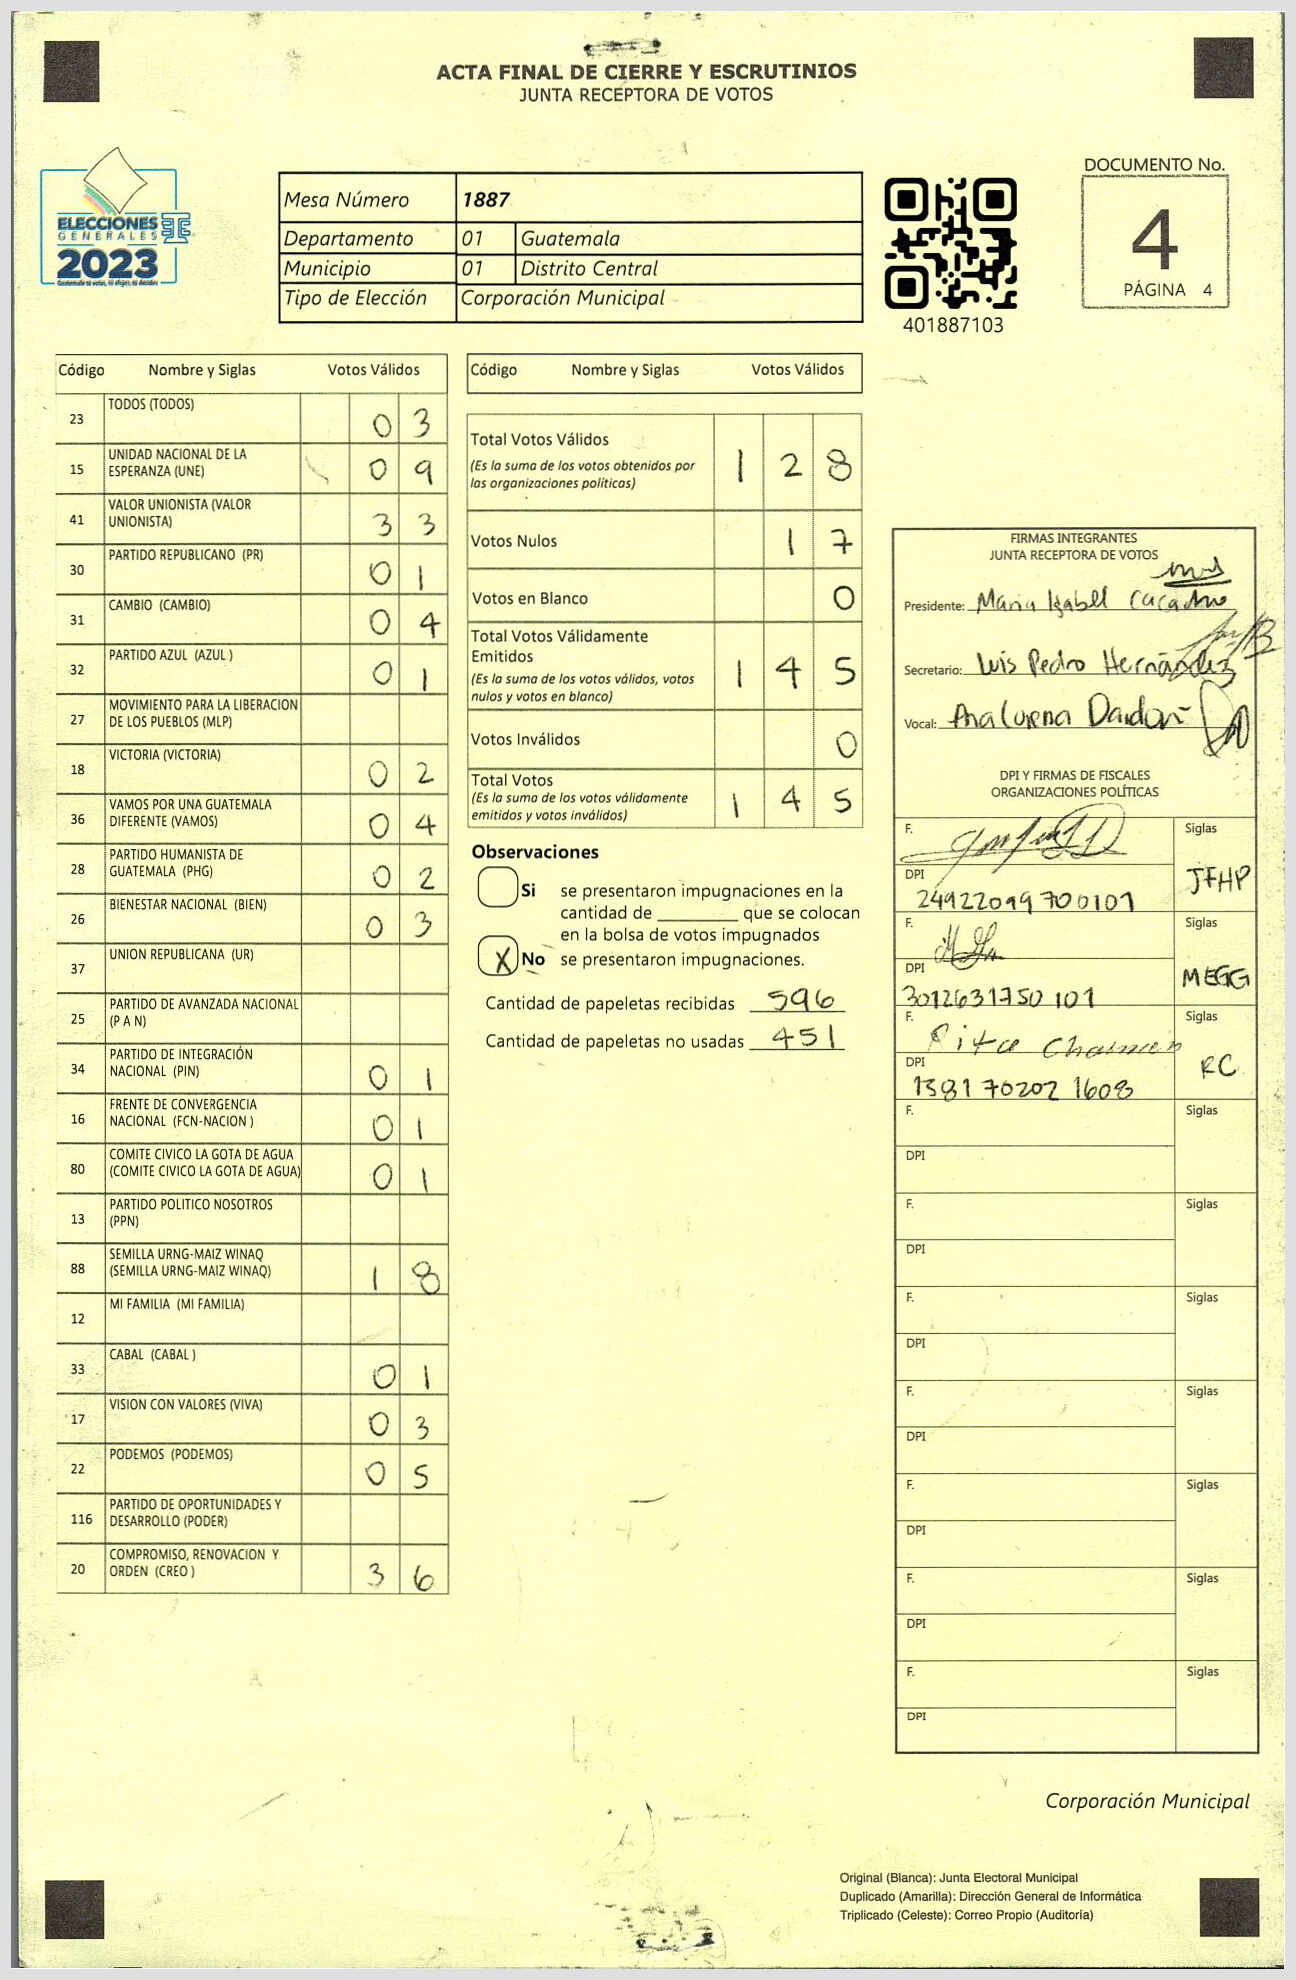 ACTA FINAL DE CIERRE Y ESCRUTINIOS
JUNTA RECEPTORA DE VOTOS
ELECCIONES
GENERALES
2023
Mesa Número 1887
Departamento 01 Guatemala
Municipio 01 Distrito Central
Tipo de Elección Corporación Municipal
401887103
DOCUMENTO No.
4
PÁGINA 4
Código Nombre y Siglas Votos Válidos
23 TODOS (TODOS) 03
15 UNIDAD NACIONAL DE LA
ESPERANZA (UNE) 09
41 VALOR UNIONISTA (VALOR
UNIONISTA) 33
30 PARTIDO REPUBLICANO (PR) 01
31 CAMBIO (CAMBIO) 04
32 PARTIDO AZUL (AZUL ) 01
27 MOVIMIENTO PARA LA LIBERACION
DE LOS PUEBLOS (MLP)
18 VICTORIA (VICTORIA) 02
36 VAMOS POR UNA GUATEMALA
DIFERENTE (VAMOS) 04
28 PARTIDO HUMANISTA DE
GUATEMALA (PHG) 02
26 BIENESTAR NACIONAL (BIEN) 03
37 UNION REPUBLICANA (UR)
25 PARTIDO DE AVANZADA NACIONAL
(P A N)
34 PARTIDO DE INTEGRACIÓN
NACIONAL (PIN) 01
16 FRENTE DE CONVERGENCIA
NACIONAL (FCN-NACION ) 01
80 COMITE CIVICO LA GOTA DE AGUA
(COMITE CIVICO LA GOTA DE AGUA) 01
13 PARTIDO POLITICO NOSOTROS
(PPN)
88 SEMILLA URNG-MAIZ WINAQ
(SEMILLA URNG-MAIZ WINAQ) 18
12 MI FAMILIA (MI FAMILIA)
33 CABAL (CABAL ) 01
17 VISION CON VALORES (VIVA) 03
22 PODEMOS (PODEMOS) 05
116 PARTIDO DE OPORTUNIDADES Y
DESARROLLO (PODER)
20 COMPROMISO, RENOVACION Y
ORDEN (CREO ) 36
Código Nombre y Siglas Votos Válidos
Total Votos Válidos 128
(Es la suma de los votos obtenidos por
las organizaciones políticas)
Votos Nulos 17
Votos en Blanco 0
Total Votos Válidamente
Emitidos 145
(Es la suma de los votos válidos, votos
nulos y votos en blanco)
Votos Inválidos 0
Total Votos 145
(Es la suma de los votos válidamente
emitidos y votos inválidos)
Observaciones
Si se presentaron impugnaciones en la
cantidad de ________ que se colocan
en la bolsa de votos impugnados
X No se presentaron impugnaciones.
Cantidad de papeletas recibidas 596
Cantidad de papeletas no usadas 451
FIRMAS INTEGRANTES
JUNTA RECEPTORA DE VOTOS
Presidente: Maria Isabel
Secretario: Luis Pedro Hernández
Vocal: Ana Lorena Dardon
DPI Y FIRMAS DE FISCALES
ORGANIZACIONES POLÍTICAS
F. Siglas
JFHP
DPI
2492209970 0101
F. Siglas
MEGG
DPI
3012631750 101
F. Rita Siglas
RC
DPI
1581 70202 1608
F. Siglas
DPI
F. Siglas
DPI
F. Siglas
DPI
F. Siglas
DPI
F. Siglas
DPI
F. Siglas
DPI
F. Siglas
DPI
Corporación Municipal
Original (Blanca): Junta Electoral Municipal
Duplicado (Amarilla): Dirección General de Informática
Triplicado (Celeste): Correo Propio (Auditoría)